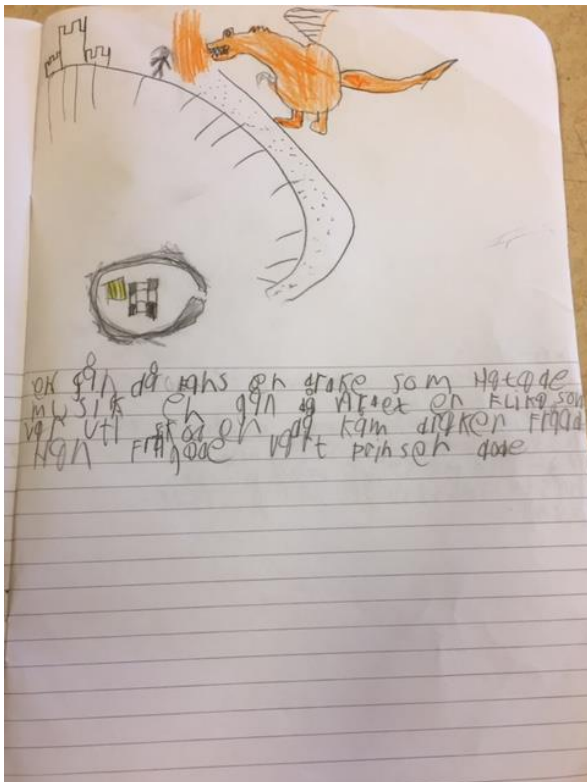 en gån då fans en drake som Hatade
musik en gån då var det en flika som
var uti skogen då kam draken Fram
Han Frågade vart prinsen dode